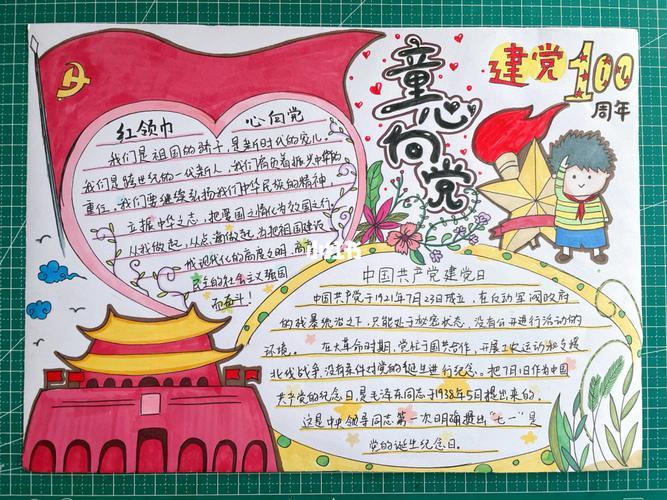 童心向党
建党100
周年
红领巾 心向党
我们是祖国的骄子,是新时代的宠儿。
我们是跨世纪的一代新人,我们肩负着振兴中华的
重任。我们要继续弘扬我们中华民族的精神,
立振中华之志,把爱国之情化为效国之行,
从我做起,从点滴做起,为把祖国建设
成现代化的高度文明、高
民主的社会主义强国
而奋斗!
中国共产党建党日
中国共产党于1921年7月23日成立,在反动军阀政府
的残暴统治之下,只能处于秘密状态,没有公开进行活动的
环境。在大革命时期,党忙于国共合作,开展工农运动和支援
北伐战争,没有条件对党的诞生进行纪念。把7月1日作为中国
共产党的纪念日,是毛泽东同志于1938年5月提出来的。
这是中央领导同志第一次明确提出"七一"是
党的诞生纪念日。